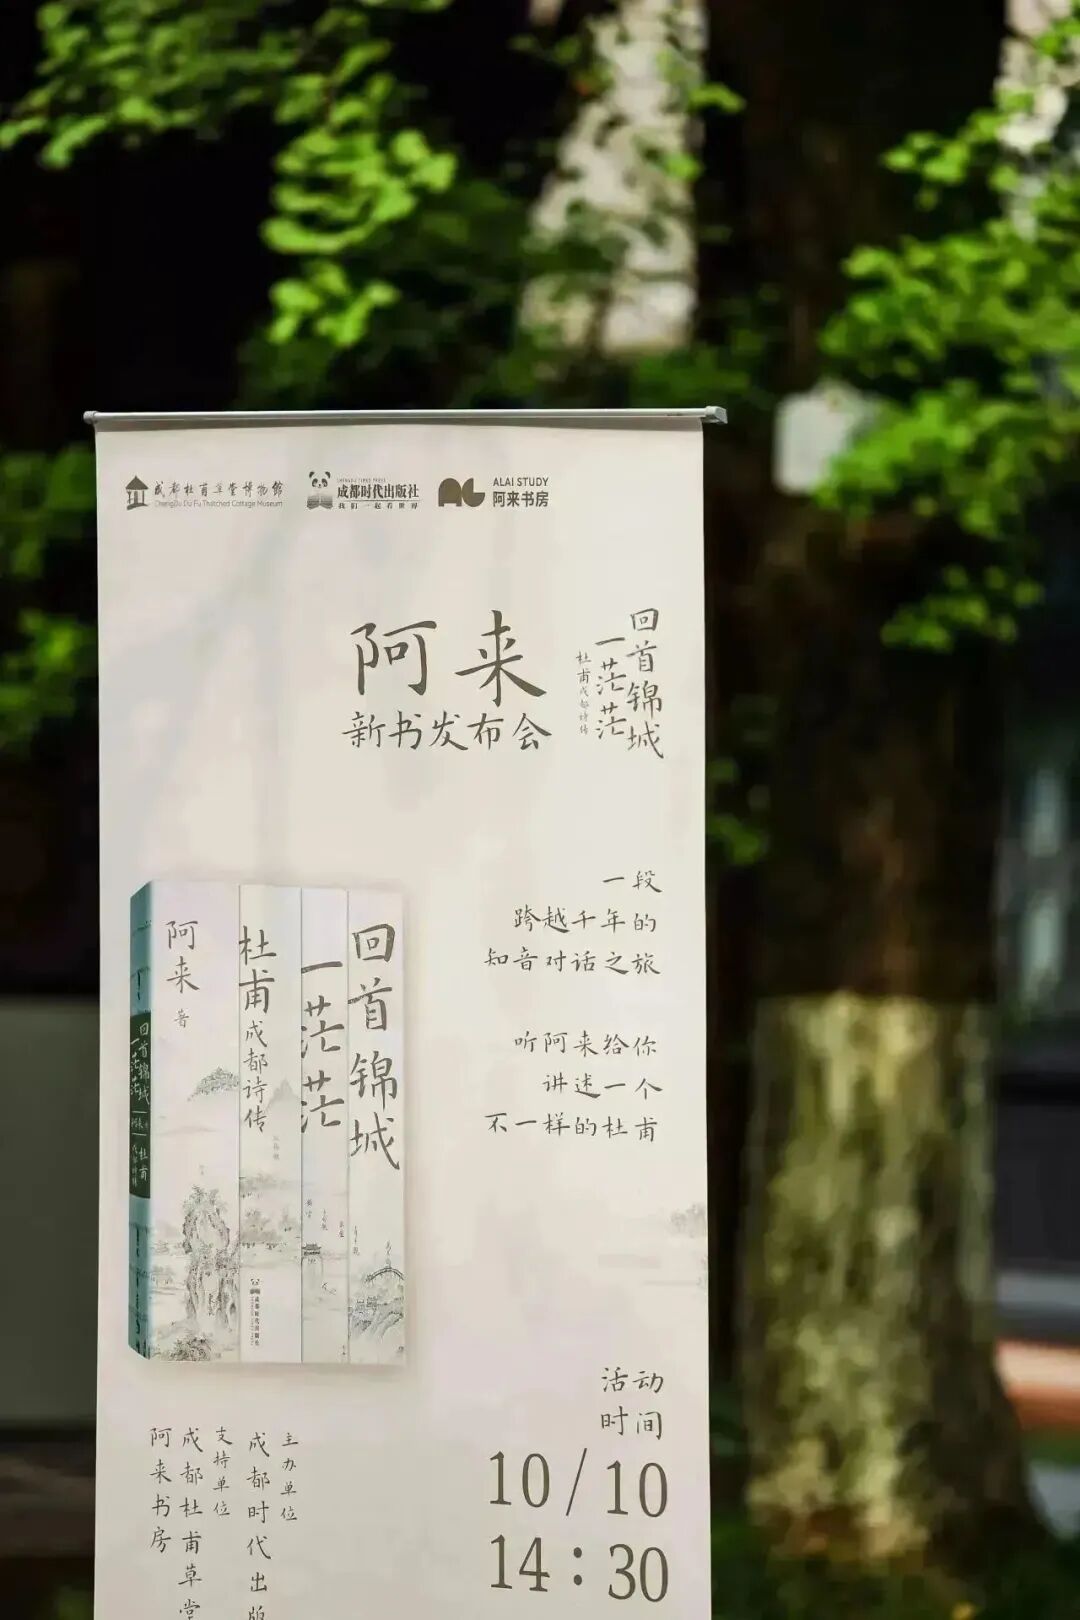 成都杜甫草堂博物館
ChengDu Du Fu Thatched Cottage Museum
CHENGDU TIMES PRESS
成都时代出版社
我们一起看世界
ALAI STUDY
阿来书房
阿来
新书发布会
回首锦城
一茫茫
杜甫成都诗传
一段
跨越千年的
知音对话之旅
听阿来给你
讲述一个
不一样的杜甫
回首锦城
一茫茫
杜甫成都诗传
阿来 著
成都时代出版社
回首锦城
一茫茫
杜甫
活动
时间
10/10
14:30
主办单位
成都时代出版
支持单位
成都杜甫草堂
阿来书房